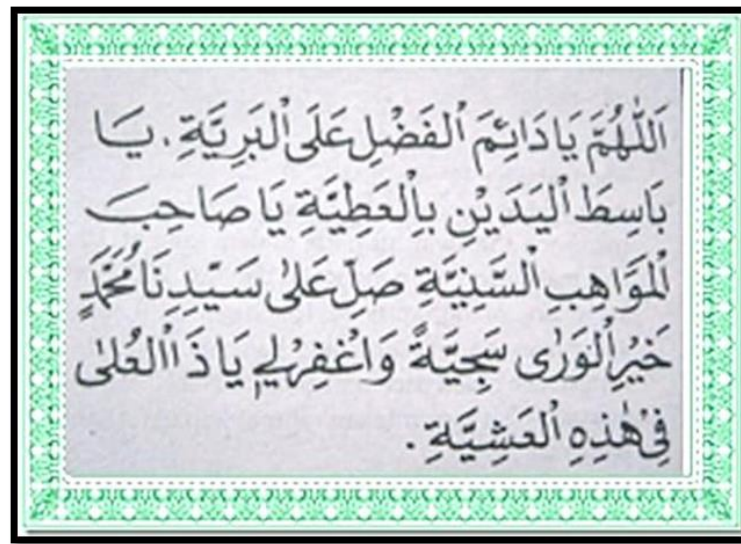 اَللّٰهُمَّ يَا دَائِمَ الْفَضْلِ عَلَى الْبَرِيَّةِ . يَا
بَاسِطَ الْيَدَيْنِ بِالْعَطِيَّةِ يَا صَاحِبَ
الْمَوَاهِبِ السَّنِيَّةِ صَلِّ عَلٰى سَيِّدِنَا مُحَمَّدٍ
خَيْرِ الْوَرٰى سَجِيَّةً وَاغْفِرْ لِي يَا ذَا الْعُلٰى
فِي هٰذِهِ الْعَشِيَّةِ .